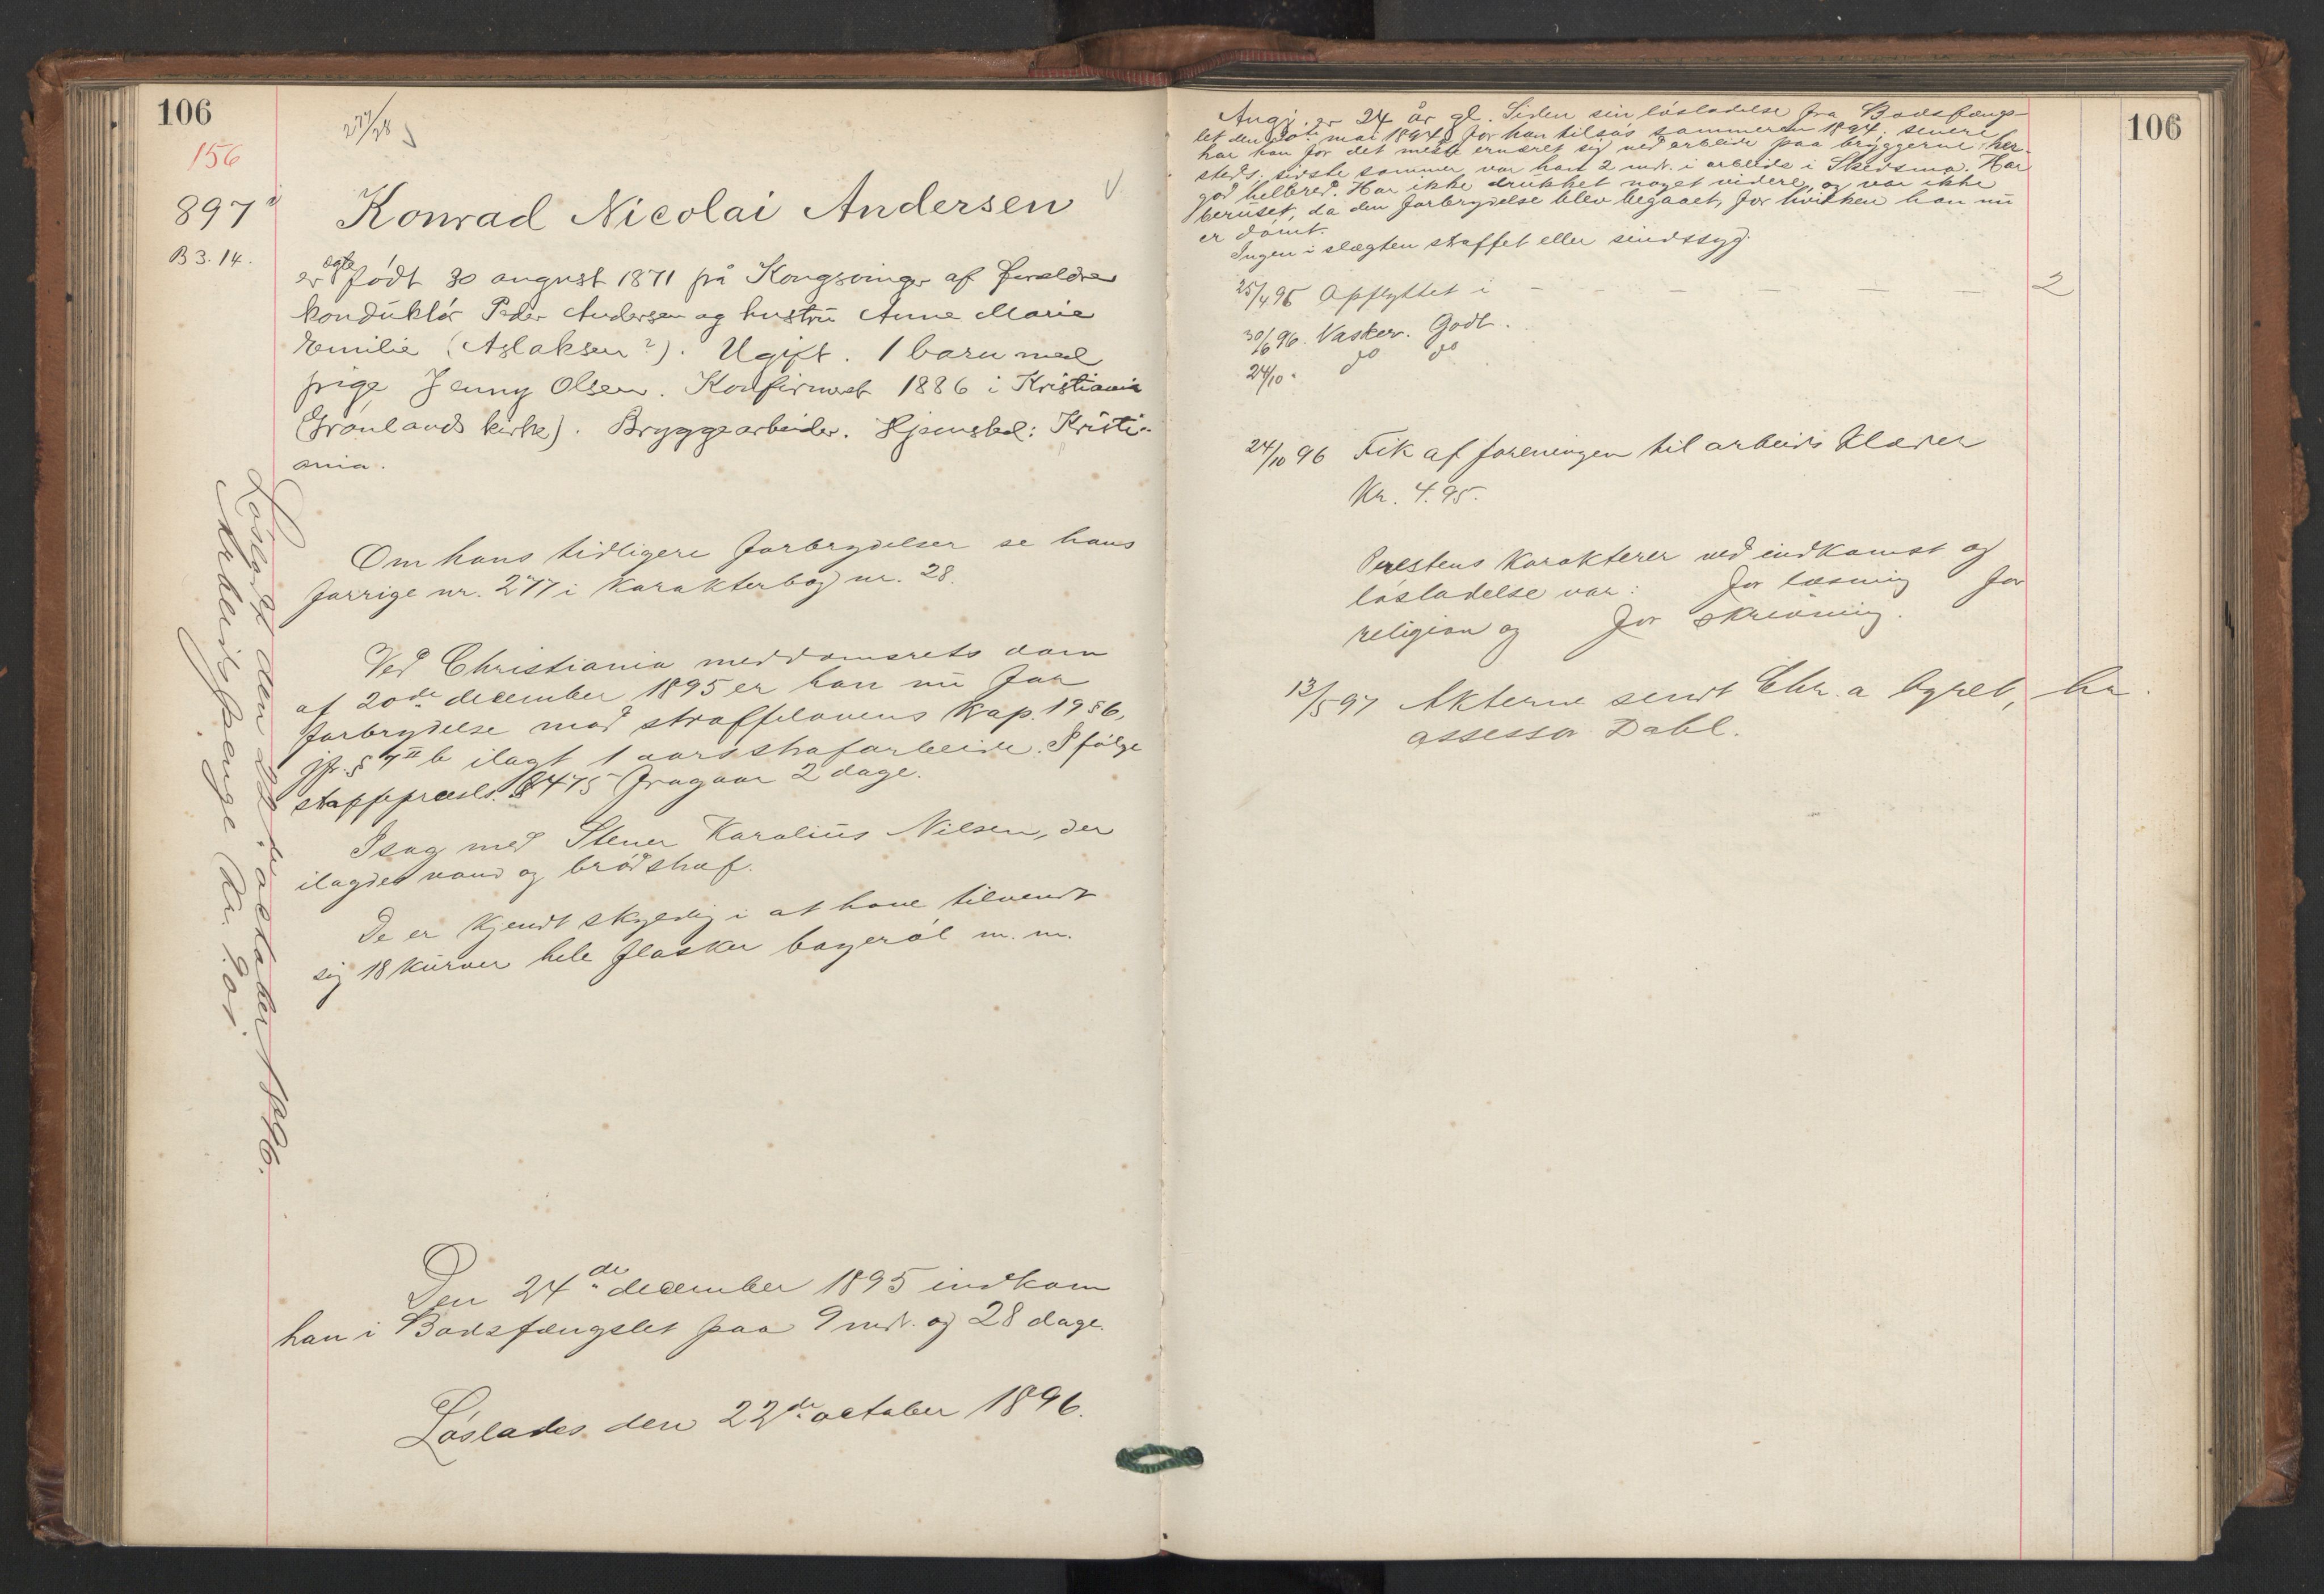 106
156
277/28
897
B 3. 14.
Konrad Nicolai Andersen
er ægte født 30 august 1871 på Kongsvinger af forældre
konduktør Peder Andersen og hustru Anne Marie
Emilie (Aslaksen?). Ugift. 1 barn med
pige Jenny Olsen. Konfirmert 1886 i Kristiania
(Grønlands kirke). Bryggearbeider. Hjemsted: Kristi-
ania.
Om hans tidligere forbrydelser se hans
forrige nr. 277 i Karakterbog nr. 28.
Ved Christiania meddomsrets dom
af 20de december 1895 er han nu for
forbrydelse mod straffelovens Kap. 19 § 6,
jfr. § 7 II b ilagt 1 aars strafarbeide. I følge
straffeprocesls. § 475 fragaar 2 dage.
I sag med Stener Karolius Nilsen, der
ilagdes vand og brødstraf.
De er kjendt skyldig i at have tilvendt
sig 18 kurver hele flasker bayerøl m. m.
Den 24de december 1895 indkom
han i Bodsfængslet paa 9 mdr. og 28 dage.
Løslades den 22de october 1896.
Løsladt den 22de october 1896.
Arbeidspenge Kr.
106
Angj. er 24 år gl. Siden sin løsladelse fra Bodsfæng-
let den mai 1894, for han tilsøs sommeren 1894; senere
har han for det meste ernæret sig ved arbeide paa bryggerne her-
steds; sidste sommer var han 2 mdr. i arbeide i Skedsmo. Har
god helbred. Har ikke drukket noget videre, og var ikke
beruset, da den forbrydelse blev begaaet, for hvilken han nu
er dømt.
Ingen i slægten straffet eller sindssyg.
25/4 96 Opflyttet i — — — — — — 2
30/6 96. Vasker. Godt.
24/10 " do do
24/10 96 Fik af foreningen til arbeids klæder
Kr. 4.95.
Prestens Karakterer ved indkomst og
løsladelse var: for læsning for
religion og for skrivning.
13/5 97 Akterne sendt Chr.a byret, hr.
assessor Dahl.